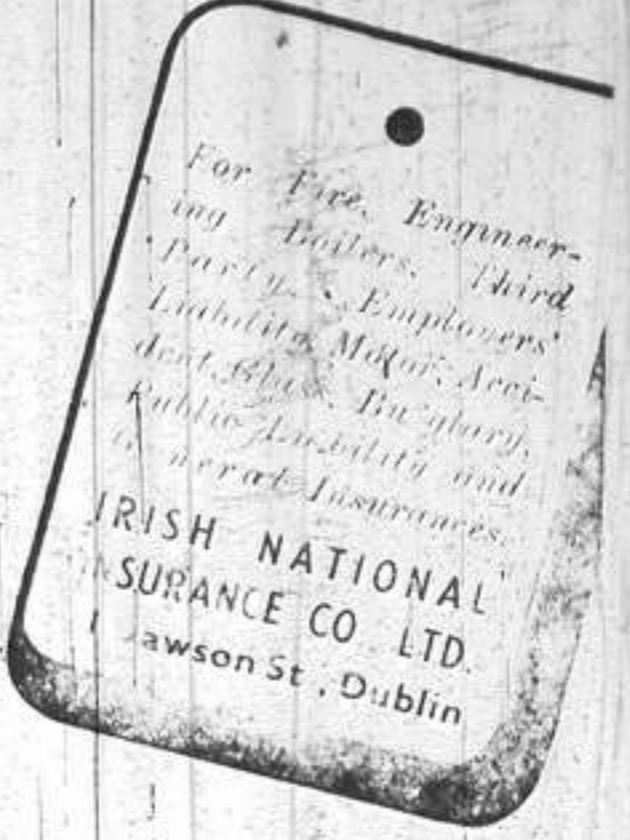 For Fire, Engineer-
ing Boilers, Third
Party, Employers'
Liability, Motor, Acci-
dent, Glass, Burglary,
Public Liability and
General Insurances.
IRISH NATIONAL
INSURANCE CO LTD.
Dawson St., Dublin